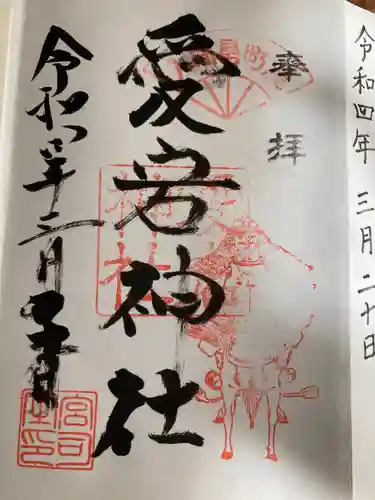 令和四年 三月二十日
奉拝
愛宕神社
令和四年三月二十日
宮司之印